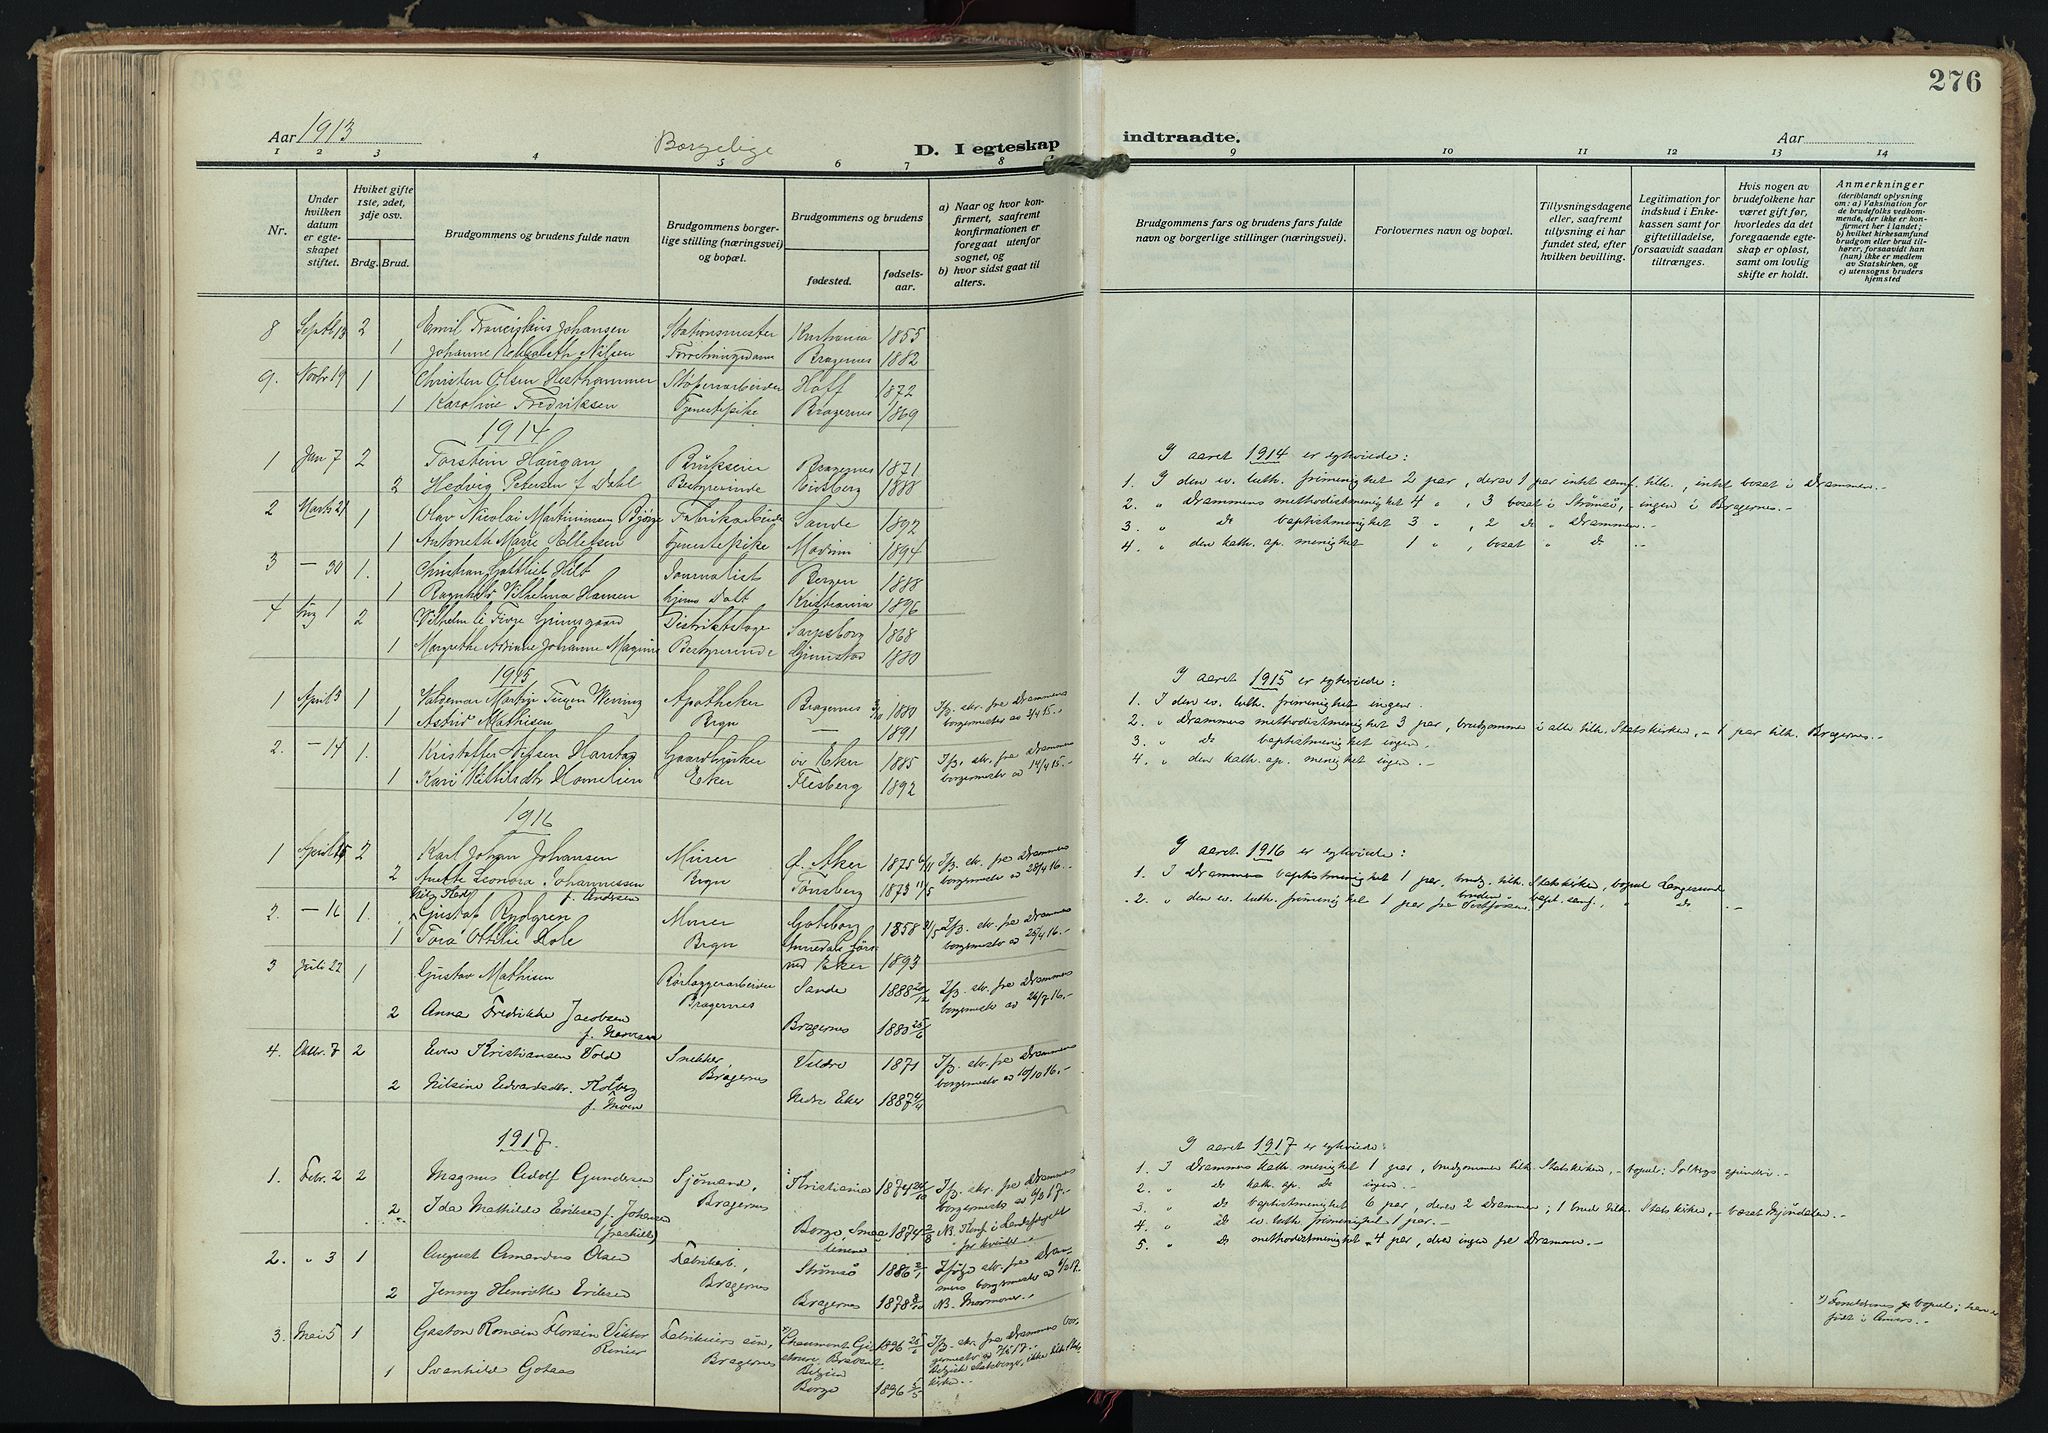 276
Aar 1913
Borgelige
D. I egteskap
indtraadte.
Aar
1 2 3 4 5 6 7 8 9 10 11 12 13 14
Nr.
Under hvilken datum er egteskapet stiftet.
Hviket gifte 1ste, 2det, 3dje osv.
Brdg. Brud.
Brudgommens og brudens fulde navn
Brudgommens borgerlige stilling (næringsvei) og bopæl.
Brudgommens og brudens
fødested.
fødselsaar.
a) Naar og hvor konfirmert, saafremt konfirmationen er foregaat utenfor sognet, og
b) hvor sidst gaat til alters.
Brudgommens fars og brudens fars fulde navn og borgerlige stillinger (næringsvei).
Forlovernes navn og bopæl.
Tillysningsdagene eller, saafremt tillysning ei har fundet sted, efter hvilken bevilling.
Legitimation for indskud i Enkekassen samt for giftetilladelse, forsaavidt saadan tiltrænges.
Hvis nogen av brudefolkene har været gift før, hvorledes da det foregaaende egteskap er opløst, samt om lovlig skifte er holdt.
Anmerkninger
(deriblandt oplysning om: a) Vaksination for de brudefolks vedkommende, der ikke er konfirmert her i landet;
b) hvilket kirkesamfund brudgom eller brud tilhører, forsaavidt han (hun) ikke er medlem av Statskirken, og
c) utensogns bruders hjemsted
8 Septb 13 2 Emil Johansen Stationsmester Kristiania 1855
1 Johanne Elisabeth Nilsen Forretningsdame Bragernes 1882
9. Novbr 19 1 Christen Olsen Hesthammer Støperiarbeider Hoff 1872
1 Karoline Fredriksen Tjenestepike Bragernes 1869
1914
1 Jan 7 2 Torstein Haugan Brukseier Bragernes 1871
2 Hedvig Petersen f. Dahl Bestyrerinde Eidsberg 1888
2 Marts 21 1 Olav Nicolai Martiniussen Fabrikarbeider Sande 1892
1 Antoneth Marie Ellefsen Tjenestepike Modum 1894
3 — 30 1. Christian Gottlieb Hilt Journalist Bergen 1888
1 Ragnhild Vilhelmia Hansen Kristiania 1896
4 Aug 1 2 Vilhelm Grimsgaard Distriktslæge Sarpsborg 1868
1 Margrethe Adriane Johanne Bestyrerinde Grimstad 1880
1915
1 April 3 1 Valdemar Martin Apotheker Bragernes 1880 Ifg. skr. fra Drammens
1 Astrid Mathisen Brgn — 1891 borgermester av 3/4 15.
2. — 14 1. Kristoffer Nilsen Gaardbruker øv Eker 1885 Ifg. skr. fra Drammens
1 Kari Eker Flesberg 1892 borgermester av 14/4 15.
1916
1 April 15 2 Karl Johan Johansen Murer Ø. Aker 1875 Ifg. skr. fra Drammens
2 Anette Leonora Johannessen Brgn Tønsberg 1873 11/5 borgermester av 28/4 16.
f. Andersen
2. — 16 1. Gustaf Rydgren Murer Gøteborg 1858 Ifg. skr. fra Drammens
1 Tora Othilie Brgn 1893 borgermester av 25/4 16.
3 Juli 22 1 Gustav Mathisen Rørlæggerarbeider Sande 1888 20/12 Ifg. skr. fra Drammens
Bragernes borgermester av 26/7 16.
2 Anna Fredrikke Jacobsen Bragernes 1880 25/6
4. Oktbr. 7 2 Even Kristiansen Vold Snekker 1871 Ifg. skr. fra Drammens
Bragernes borgermester av 10/10 16.
2 Nilsine Edvardsdtr. Kolberg Nedre Eker 1887 4/4
f. Moen
1917.
1. Febr. 2 2 Magnus Adolf Gundersen Sjømand, Kristiania 1874 Ifg. skr. fra Drammens
Bragernes borgermester av 6/2 17.
2 Ida Mathilde Eriksen f. Johansen Borge, Smaalenene 1874 2/8 N.B. Konf. i Landsfængslet
(fraskilt) for kvinder
2. " 3 1 August Amandus Olsen Fabrikarb., Strømsø 1886 2/1 Ifølge skr. fra Drammens borgermester av 6/2 17.
2 Jenny Henriette Eriksen Bragernes Bragernes 1878 NB. Mormoner.
3. Mai 5 1 Gaston Romain Florain Viktor Fabrikeiers søn, Bragernes Belgien 1896 25/6 Ifg. skr. fra Drammens borgermester av 7/5 17.
Renier
1 Svanhild Gotaas Borge 1896 5/5
I aaret 1914 er egteviede:
1. I den ev. luth. frimenighet 2 par, derav 1 par intet samf. tilh., intet bosat i Drammen.
2. " Drammens methodistmenighet 4 " , 3 bosat i Strømsø, - ingen i Bragernes.
3. " Do baptistmenighet 3 " , 2 do " Drammen.
4. " den kath. ap. menighet 1 " , bosat " do
I aaret 1915 er egteviede:
1. I den ev. luth. frimenighet ingen.
2. " Drammens methodistmenighet 3 par, brudgommen i alle tilh. Statskirken, - 1 par tilh. Bragernes.
3. " Do baptistmenighet ingen.
4. " den kath. ap. menighet ingen.
I aaret 1916 er egteviede:
1. I Drammens baptistmenighet 1 par, brudg. tilh. Statskirken, bopæl Langesund
bruden bapt. samf., " do
2. " den ev. luth. frimenighet 1 par fra
I aaret 1917 er egteviede:
1. I Drammens kath. menighet 1 par, brudgommen tilh. Statskirken, - bopæl: Solbergs spinderi.
2. " do kath. ap. do ingen.
3. " do baptistmenighet 6 par, derav 2 Drammen; 1 brud tilh. Statskirken, - bosat Mjøndalen.
4. " do ev. luth. frimenighet 1 par.
5. " do methodistmenighet 4 par, derav ingen fra Drammen.
*) Forældrenes bopæl; han er
født i